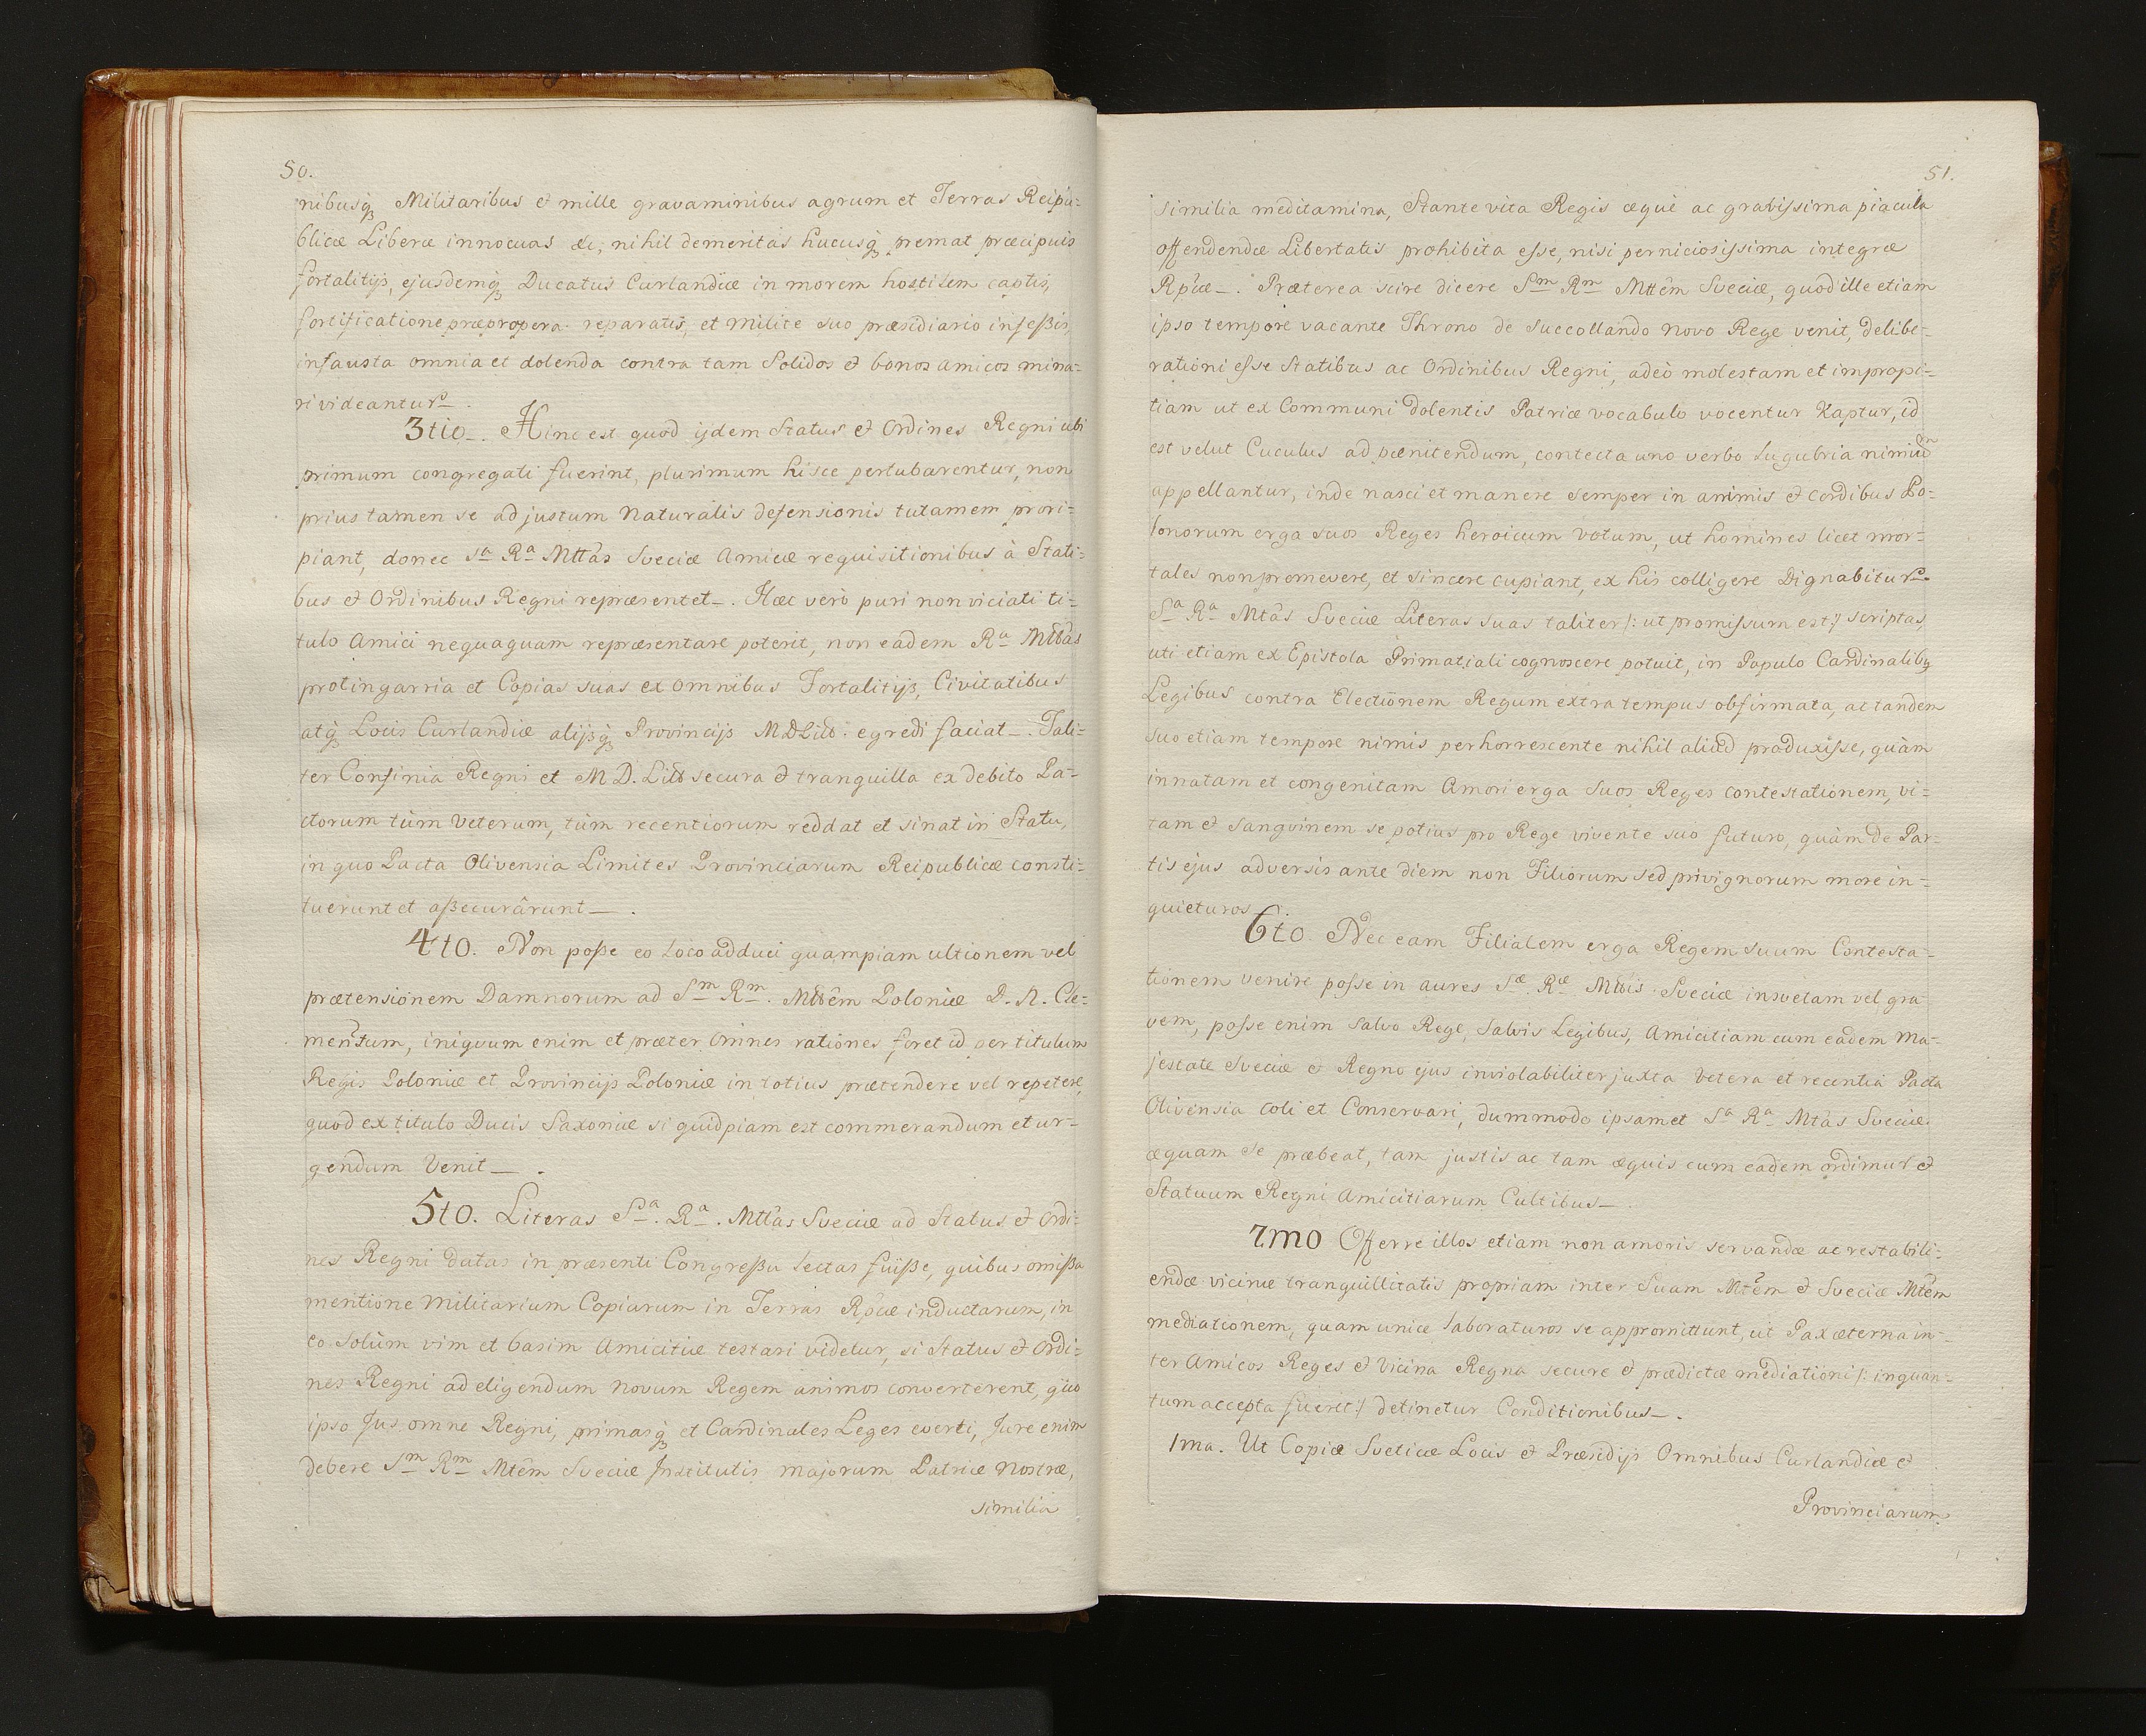 50.
nibusq Militaribus et mille gravaminibus agrum et Terras Reipu-
blicæ Liberæ innocuas &c, nihil demeritas hucusq premat præcipuis
fortalitijs, ejusdemq Ducatus Curlandiæ in morem hostilem captis,
fortificatione præpropera reparatis, et milite suo præsidiario insessis,
infausta omnia et dolenda contra tam Solidos et bonos amicos mina-
ri videantur.
3tio. Hinc est quod ijdem Status et Ordines Regni ubi
primum congregati fuerint, plurimum hisce pertubarentur, non
prius tamen se ad justum Naturalis defensionis tutamem prori-
piant, donec Sa Ra Mttas Sveciæ Amicæ requisitionibus à Stati-
bus et Ordinibus Regni repræsentet. Hæc verò puri non viciati ti-
tulo Amici nequaquam repræsentare poterit, non eadem Ra Mttas
protingarria et Copias suas ex omnibus Fortalitijs, Civitatibus
atq Locis Curlandiæ alijsq Provincijs MDLitt. egredi faciat. Tali-
ter Confinia Regni et M D. Litt secura et tranquilla ex debito Pa-
ctorum tùm Veterum, tùm recentiorum reddat et sinat in Statu,
in quo Pacta Olivensia Limites Provinciarum Reipublicæ consti-
tuerunt et assecurârunt.
4to. Non posse eo loco adduci quampiam ultionem vel
prætensionem Damnorum ad Sm Rm. Mttêm Poloniæ D. N. Cle-
mentum, iniquum enim et præter omnes rationes foret id per titulum
Regis Poloniæ et Provincijs Poloniæ in totius prætendere vel repetere,
quod ex titulo Ducis Saxoniæ si quidpiam est commerandum et ur-
gendum Venit.
5to. Literas Sa. Ra. Mttas Sveciæ ad Status et Ordi-
nes Regni datas in præsenti Congressu lectas fuisse, quibus omissa
mentione Militarium Copiarum in Terras Rpcæ inductarum, in
eo solùm vim et basim Amicitiæ testari videtur, si Status et Ordi-
nes Regni ad eligendum novum Regem animos converterent, quo
ipso Jus omne Regni, primasq et Cardinales Leges everti, Jure enim
debere Sm Rm Mtêm Sveciæ Institutis majorum Patriæ Nostræ,
similia
51.
similia meditamina, Stante vita Regis æquè ac gravissima piacula
offendendæ Libertatis prohibita esse, nisi perniciosissima integræ
Rpcæ. Præterea scire dicere Sm Rm Mttêm Sveciæ, quod ille etiam
ipso tempore vacante Throno de succollando novo Rege venit, delibe-
rationi esse Statibus ac Ordinibus Regni, adeò molestam et impropi-
tiam ut ex Communi dolentis Patriæ vocabulo vocentur Kaptur, id
est velut Cuculus ad pœnitendum, contecta uno verbo lugubria nimium
appellantur, inde nasci et manere semper in animis et cordibus Po-
lonorum erga suos Reges heroicum votum, ut homines licet mor-
tales non promevere, et sincere cupiant, ex his colligere Dignabitur
Sa Ra Mtas Sveciæ Literas suas taliter /: ut promissum est :/ scriptas,
uti etiam ex Epistola Primatiali cognoscere potuit, in Populo Cardinalibq
Legibus contra Electionem Regum extra tempus obfirmata, at tandem
suo etiam tempore nimis perhorrescente nihil aliud produxisse, quàm
innatam et congenitam Amori erga suos Reges contestationem, vi-
tam et sangvinem se potius pro Rege vivente suo futuro, quàm de Par-
tis ejus adversis ante diem non Filiorum sed privignorum more in-
quieturos.
6to. Nec eam Filialem erga Regem suum Contesta-
tionem venire posse in aures Sæ. Ræ Mttis Sveciæ insvetam vel gra-
vem, posse enim salvo Rege, salvis Legibus, Amicitiam cum eadem Ma-
jestate Sveciæ et Regno ejus inviolabiliter juxta Vetera et recentia Pacta
Olivensia coli et Conservari, dummodo ipsamet Sa Ra Mtas Sveciæ
æquam se præbeat, tam justis ac tam æquis cum eadem ordimur et
Statuum Regni Amicitiarum Cultibus.
7mo Offerre illos etiam non amoris servandæ ac restabili-
endæ vicinæ tranquillitatis propriam inter Suam Mtêm et Sveciæ Mtêm
mediationem, quam unice laboraturos se appromittunt, ut Pax æterna in-
ter Amicos Reges et Vicina Regna secure et prædictæ mediationi /: inquan-
tum accepta fueret :/ detinetur Conditionibus.
1ma. Ut Copiæ Sveticæ Locis et Præsidijs Omnibus Curlandiæ et
Provinciarum